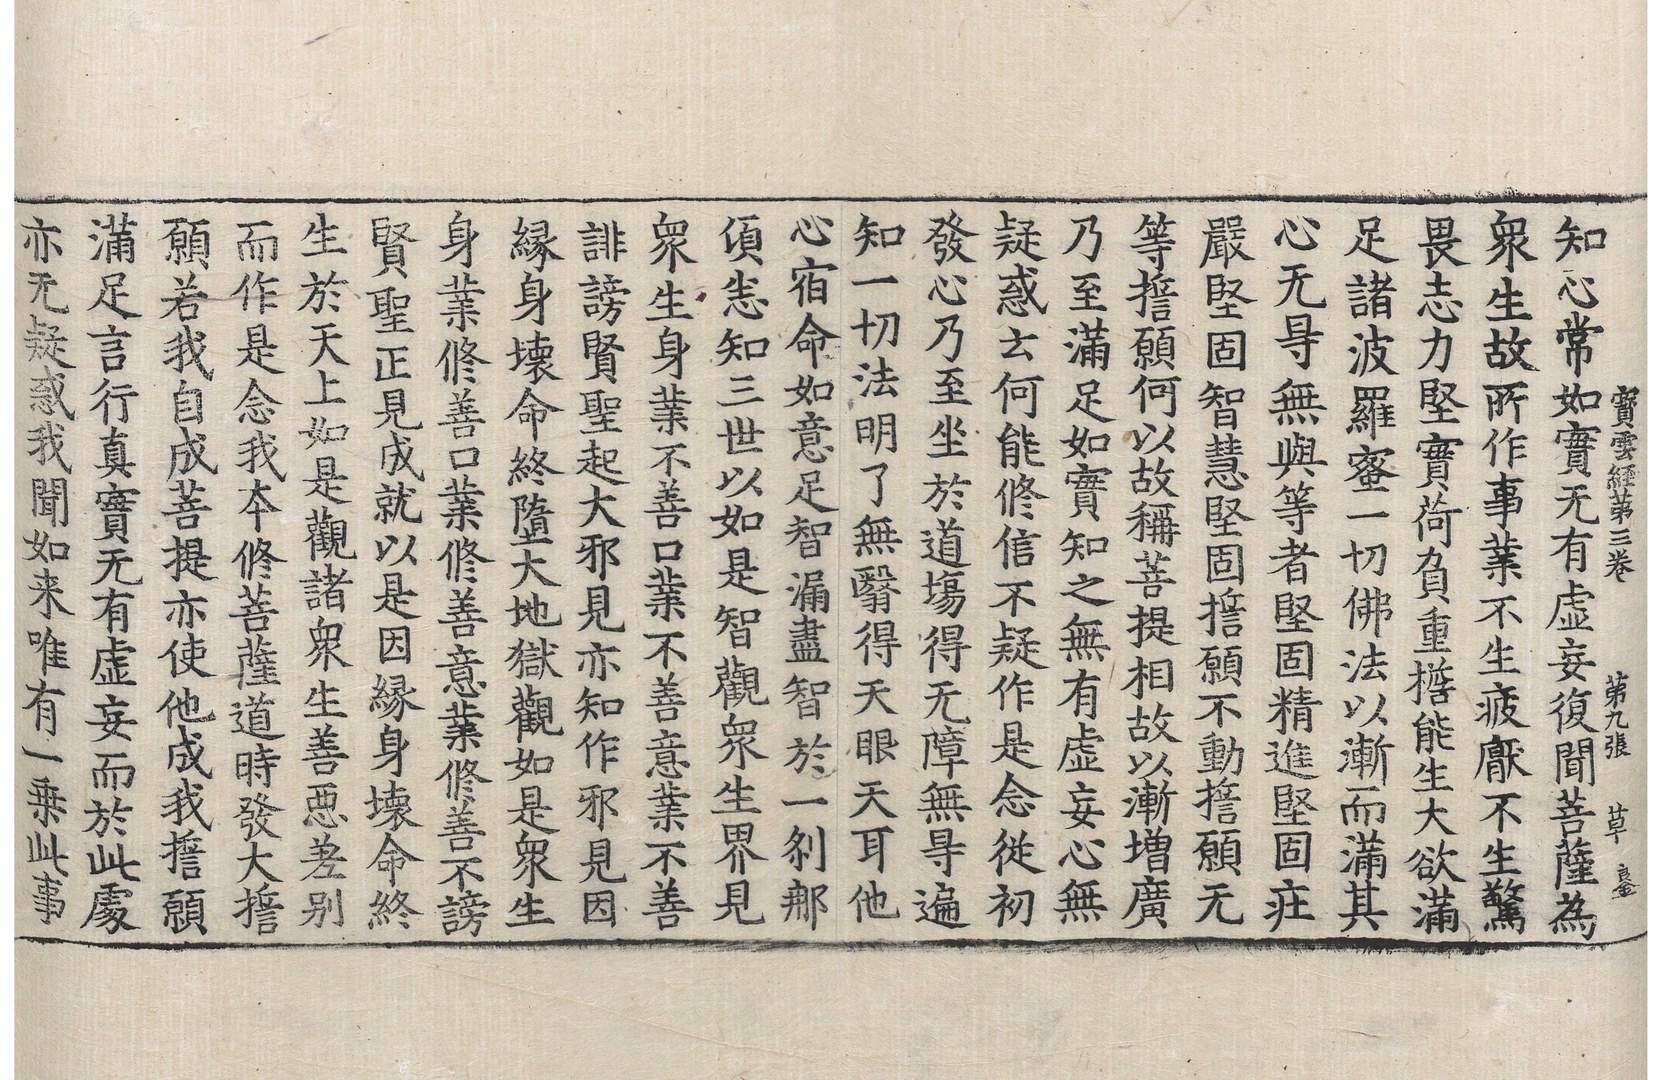 寶雲經第三卷　第九張　草
知心常如實无有虛妄復聞菩薩為
衆生故所作事業不生疲厭不生驚
畏志力堅實荷負重擔能生大欲滿
足諸波羅蜜一切佛法以漸而滿其
心无㝵無與等者堅固精進堅固庄
嚴堅固智慧堅固擔願不動擔願无
等擔願何以故稱菩提相故以漸增廣
乃至滿足如實知之無有虛妄心無
疑惑云何能修信不疑作是念從初
發心乃至坐於道塲得无障無㝵遍
知一切法明了無翳得天眼天耳他
心宿命如意足智漏盡智於一刹那
湏悉知三世以如是智觀衆生界見
衆生身業不善口業不善意業不善
誹謗賢聖起大邪見亦知作邪見因
緣身壞命終墮大地獄觀如是衆生
身業修善口業修善意業修善不謗
賢聖正見成就以是因緣身壞命終
生於天上如是觀諸衆生善惡差别
而作是念我本修菩薩道時發大擔
願若我自成菩提亦使他成我擔願
滿足言行真實无有虛妄而於此處
亦无疑惑我聞如来唯有一乗此事